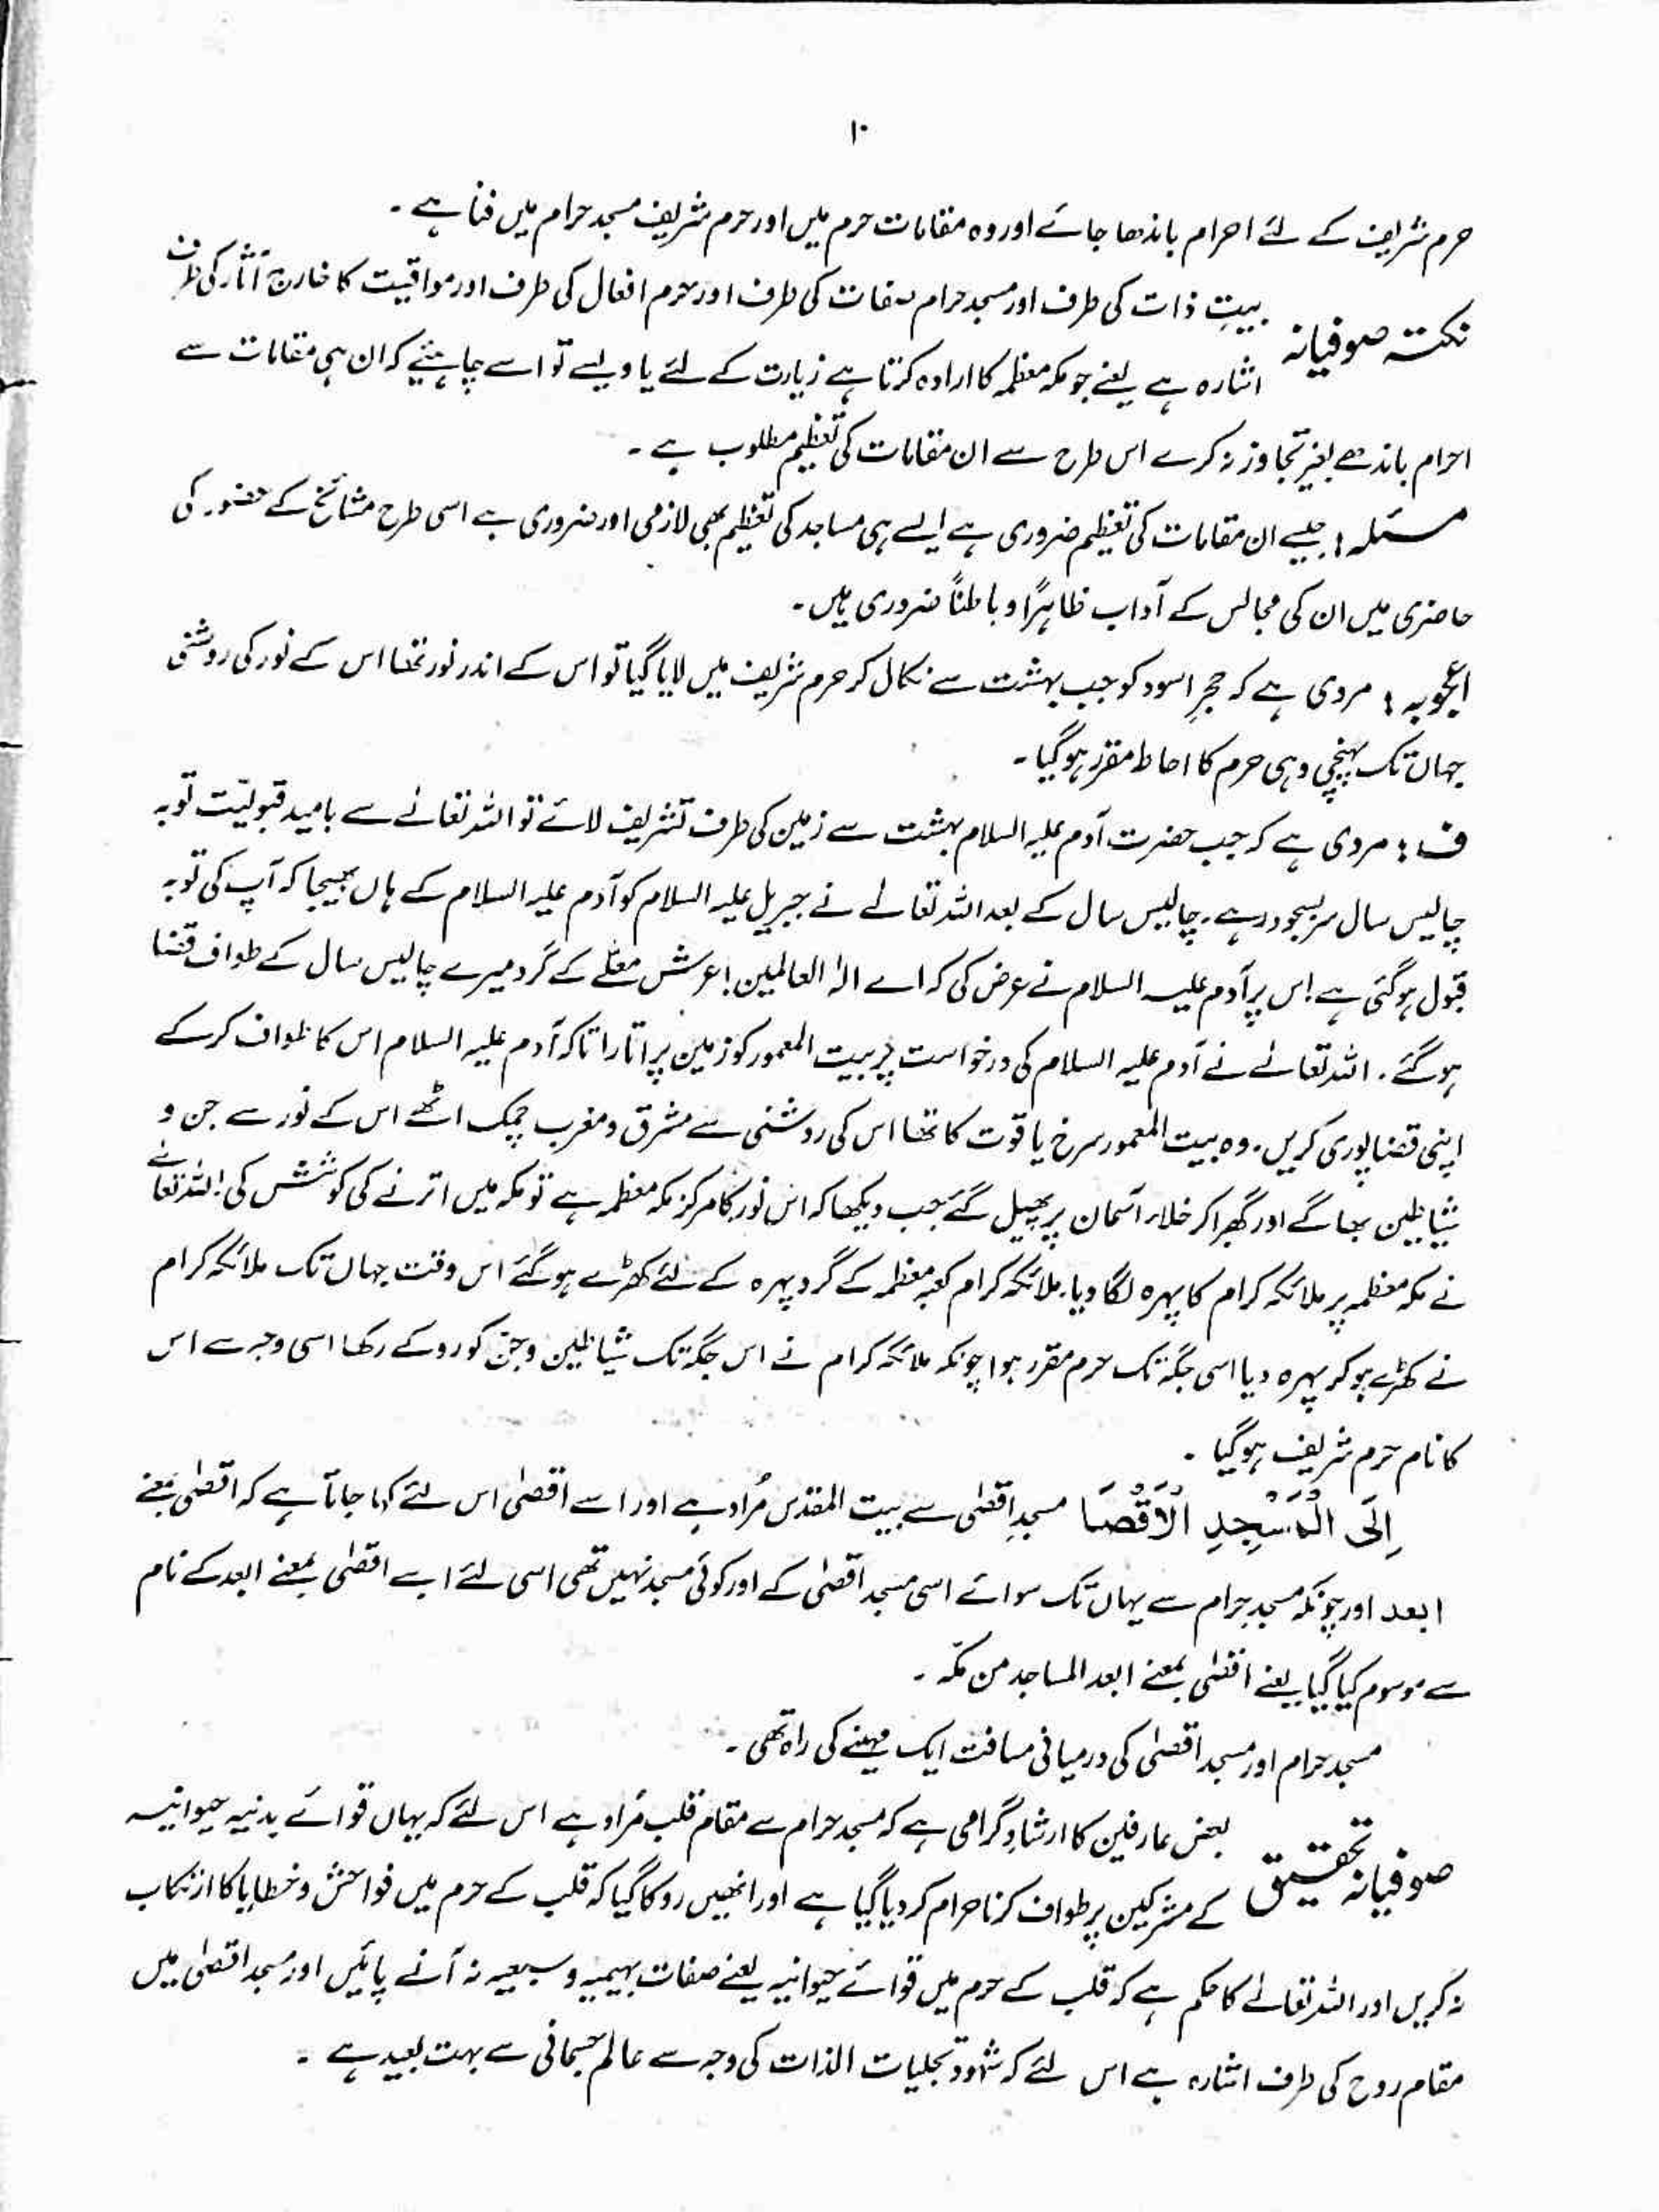 ۱۰
حرم شریف کے لئے احرام باندھا جائے اور وہ مقامات حرم میں اور حرم شریف مسجد حرام میں فنا ہے ۔
نکتہ صوفیانہ بیتِ ذات کی طرف اور مسجد حرام صفات کی طرف اور حرم افعال کی طرف اور مواقیت کا خارج آثار کی طرف
اشارہ ہے یعنے جو مکہ معظمہ کا ارادہ کرتا ہے زیارت کے لئے یا ویسے تو اسے چاہیئے کہ ان ہی مقامات سے
احرام باندھے بغیر تجاوز نہ کرے اس طرح سے ان مقامات کی تعظیم مطلوب ہے ۔
مسئلہ : جیسے ان مقامات کی تعظیم ضروری ہے ایسے ہی مساجد کی تعظیم بھی لازمی اور ضروری ہے اسی طرح مشائخ کے حضور کی
حاضری میں ان کی مجالس کے آداب ظاہرًا و باطناً ضروری ہیں ۔
اعجوبہ : مروی ہے کہ حجرِ اسود کو جب بہشت سے نکال کر حرم شریف میں لایا گیا تو اس کے اندر نور تھا اس کے نور کی روشنی
جہاں تک پہنچی وہی حرم کا احاطہ مقرر ہو گیا ۔
ف : مروی ہے کہ جب حضرت آدم علیہ السلام بہشت سے زمین کی طرف تشریف لائے تو اللہ تعالےٰ سے بامید قبولیّت توبہ
چالیس سال سربسجود رہے ۔ چالیس سال کے بعد اللہ تعالےٰ نے جبریل علیہ السلام کو آدم علیہ السلام کے ہاں بھیجا کہ آپ کی توبہ
قبول ہو گئی ہے ! اس پر آدم علیہ السلام نے عرض کی کہ اے الہٰ العالمین ! عرش معلّٰے کے گرد میرے چالیس سال کے طواف قضا
ہو گئے ۔ اللہ تعالےٰ نے آدم علیہ السلام کی درخواست پر بیت المعمور کو زمین پر اتارا تاکہ آدم علیہ السلام اس کا طواف کر کے
اپنی قضا پوری کریں ۔ وہ بیت المعمور سرخ یاقوت کا تھا اس کی روشنی سے مشرق و مغرب چمک اٹھے اس کے نور سے جن و
شیاطین بھاگے اور گھبرا کر خلاء آسمان پر پھیل گئے جب دیکھا کہ اس نور کا مرکز مکہ معظمہ ہے تو مکہ میں اترنے کی کوشش کی ! اللہ تعالےٰ
نے مکہ معظمہ پر ملائکہ کرام کا پہرہ لگا دیا ۔ ملائکہ کرام کعبہ معظمہ کے گرد پہرہ کے لئے کھڑے ہو گئے اس وقت جہاں تک ملائکہ کرام
نے کھڑے ہو کر پہرہ دیا اسی جگہ تک حرم مقرر ہوا چونکہ ملائکہ کرام نے اس جگہ تک شیاطین و جن کو روکے رکھا اسی وجہ سے اس
کا نام حرم شریف ہو گیا ۔
اِلَی الْمَسْجِدِ الْاَقْصَا مسجدِ اقصٰی سے بیت المقدس مُراد ہے اور اسے اقصٰی اس لئے کہا جاتا ہے کہ اقصٰی بمعنے
ابعد اور چونکہ مسجد حرام سے یہاں تک سوائے اسی مسجد اقصٰی کے اور کوئی مسجد نہیں تھی اسی لئے اسے اقصٰی بمعنے ابعد کے نام
سے موسوم کیا گیا یعنے اقصٰی بمعنے ابعد المساجد من مکّہ ۔
مسجد حرام اور مسجد اقصٰی کی درمیانی مسافت ایک مہینے کی راہ تھی ۔
صوفیانہ تحقیق بعض عارفین کا ارشادِ گرامی ہے کہ مسجد حرام سے مقام قلب مُراد ہے اس لئے کہ یہاں قوائے بدنیہ حیوانیہ
کے مشرکین پر طواف کرنا حرام کر دیا گیا ہے اور انھیں روکا گیا کہ قلب کے حرم میں فواحش و خطایا کا ارتکاب
نہ کریں اور اللہ تعالےٰ کا حکم ہے کہ قلب کے حرم میں قوائے حیوانیہ یعنے صفات بہیمیہ و سبعیہ نہ آنے پائیں اور مسجد اقصٰی میں
مقام روح کی طرف اشارہ ہے اس لئے کہ شہود تجلیات الذات کی وجہ سے عالم جسمانی سے بہت بعید ہے ۔